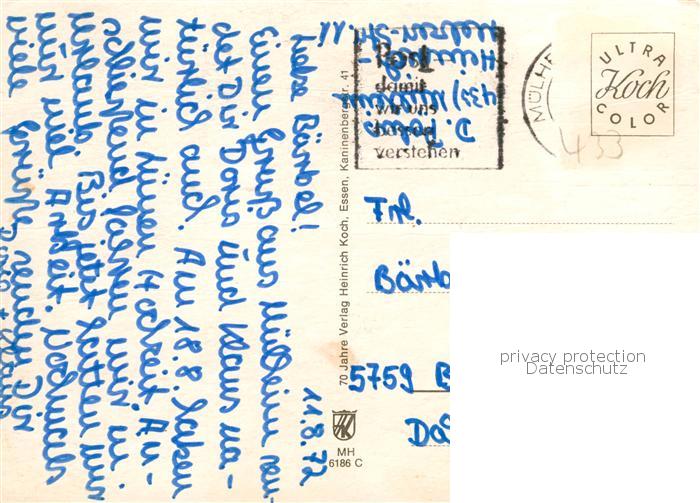 11.8.72
Liebe Bärbel!
Einen Gruß aus Mülheim sen-
det Dir Doris und Klaus na-
türlich auch. Am 18.8. haben
wir die Hochzeit. An-
schließend fahren wir in
Urlaub. Bis jetzt hatten wir
nur viel Arbeit. Nochmals
viele Grüße senden Dir
Doris + Klaus
D.
433) Mülheim
Post
damit
wir uns
besser
verstehen
MÜLHE
ULTRA
Koch
COLOR
433
70 Jahre Verlag Heinrich Koch, Essen, Kaninenbergstr. 41
Frl.
Bärb
5759 B
MH
6186 C
privacy protection
Datenschutz